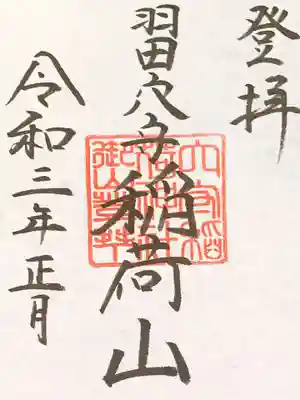 登拝
羽田穴守稲荷山
令和三年正月